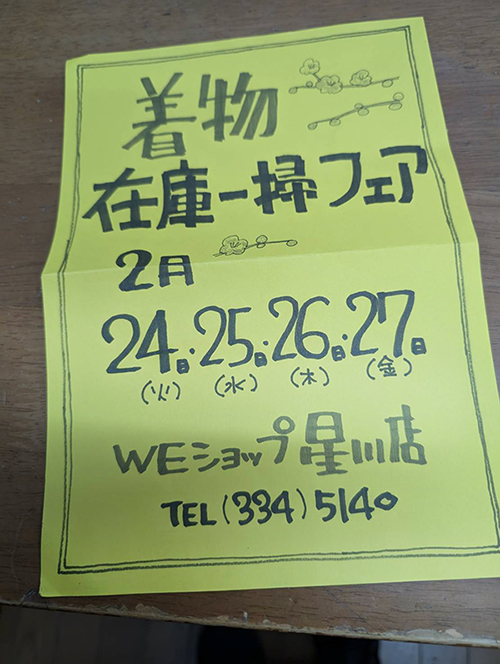 着物
在庫一掃フェア
2月
24日・25日・26日・27日
(火) (水) (木) (金)
WEショップ星川店
TEL(334)5140